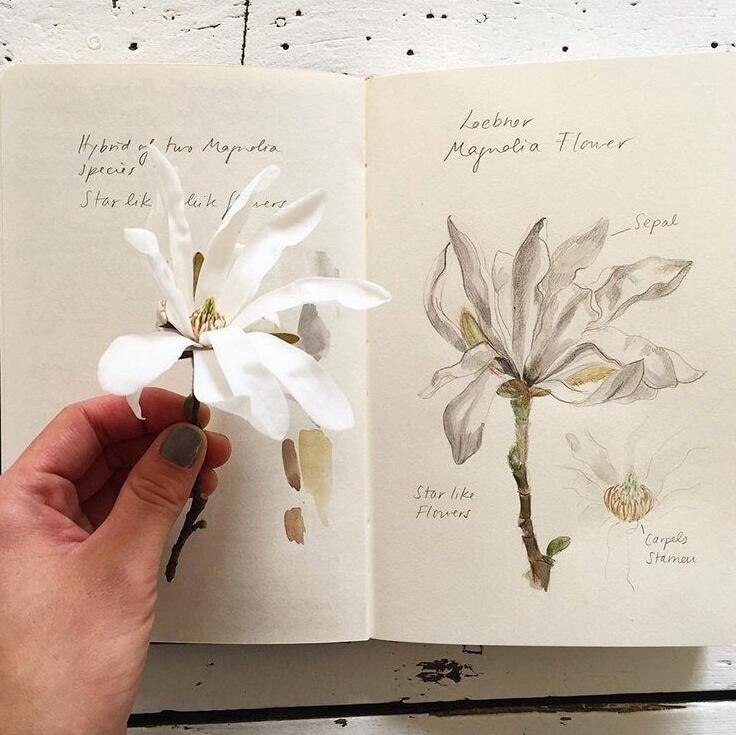 Hybrid of two Magnolia
species
Star lik flowers
Loebner
Magnolia Flower
Sepal
Star like
Flowers
Carpels
Stamen